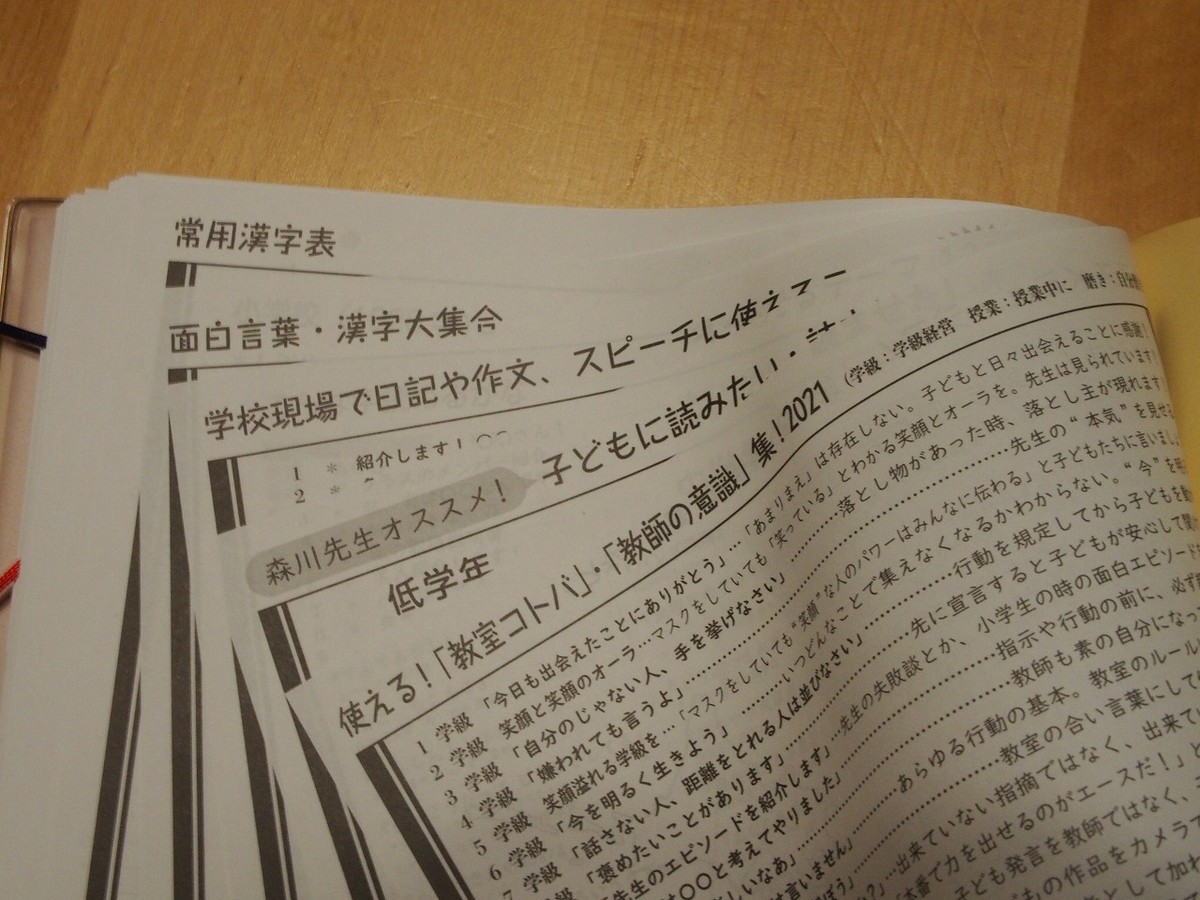 常用漢字表
面白言葉・漢字大集合
学校現場で日記や作文、スピーチに使える
1 * 紹介します!
2 *
森川先生オススメ!
子どもに読みたい・
低学年
使える!「教室コトバ」・「教師の意識」集!2021
(学級:学級経営 授業:授業中に 磨き:自分
1 学級 「今日も出会えたことにありがとう」…「あまりまえ」は存在しない。子どもと日々出会えることに感謝!
2 学級 笑顔と笑顔のオーラ…マスクをしていても「笑っている」とわかる笑顔とオーラを。先生は見られています!
3 学級 「自分のじゃない人、手を挙げなさい」……落とし物があった時、落とし主が現れます!
4 学級 「嫌われても言うよ」……先生の“本気”を見せる
5 学級 笑顔溢れる学級を…「マスクをしていても“笑顔”な人のパワーはみんなに伝わる」と子どもたちに言いましょ
6 学級 「今を明るく生きよう」……いつどんなことで集えなくなるかわからない。“今”を
7 学級 「話さない人、距離をとれる人は並びなさい」……行動を規定してから子どもを動
「褒めたいことがあります」……先に宣言すると子どもが安心して聞
先生のエピソードを紹介します」…先生の失敗談とか、小学生の時の面白エピソード
は〇〇と考えてやりました」……指示や行動の前に、必ず
しいなあ」……教師も素の自分になっ
は言いません」……あらゆる行動の基本。教室のルール
ぼう」……教室の合い言葉にして
?」…出来ていない指摘ではなく、出来て
「本番で力を出せるのがエースだ!」
子ども発言を教師ではなく、
の作品をカメラで
として加わ